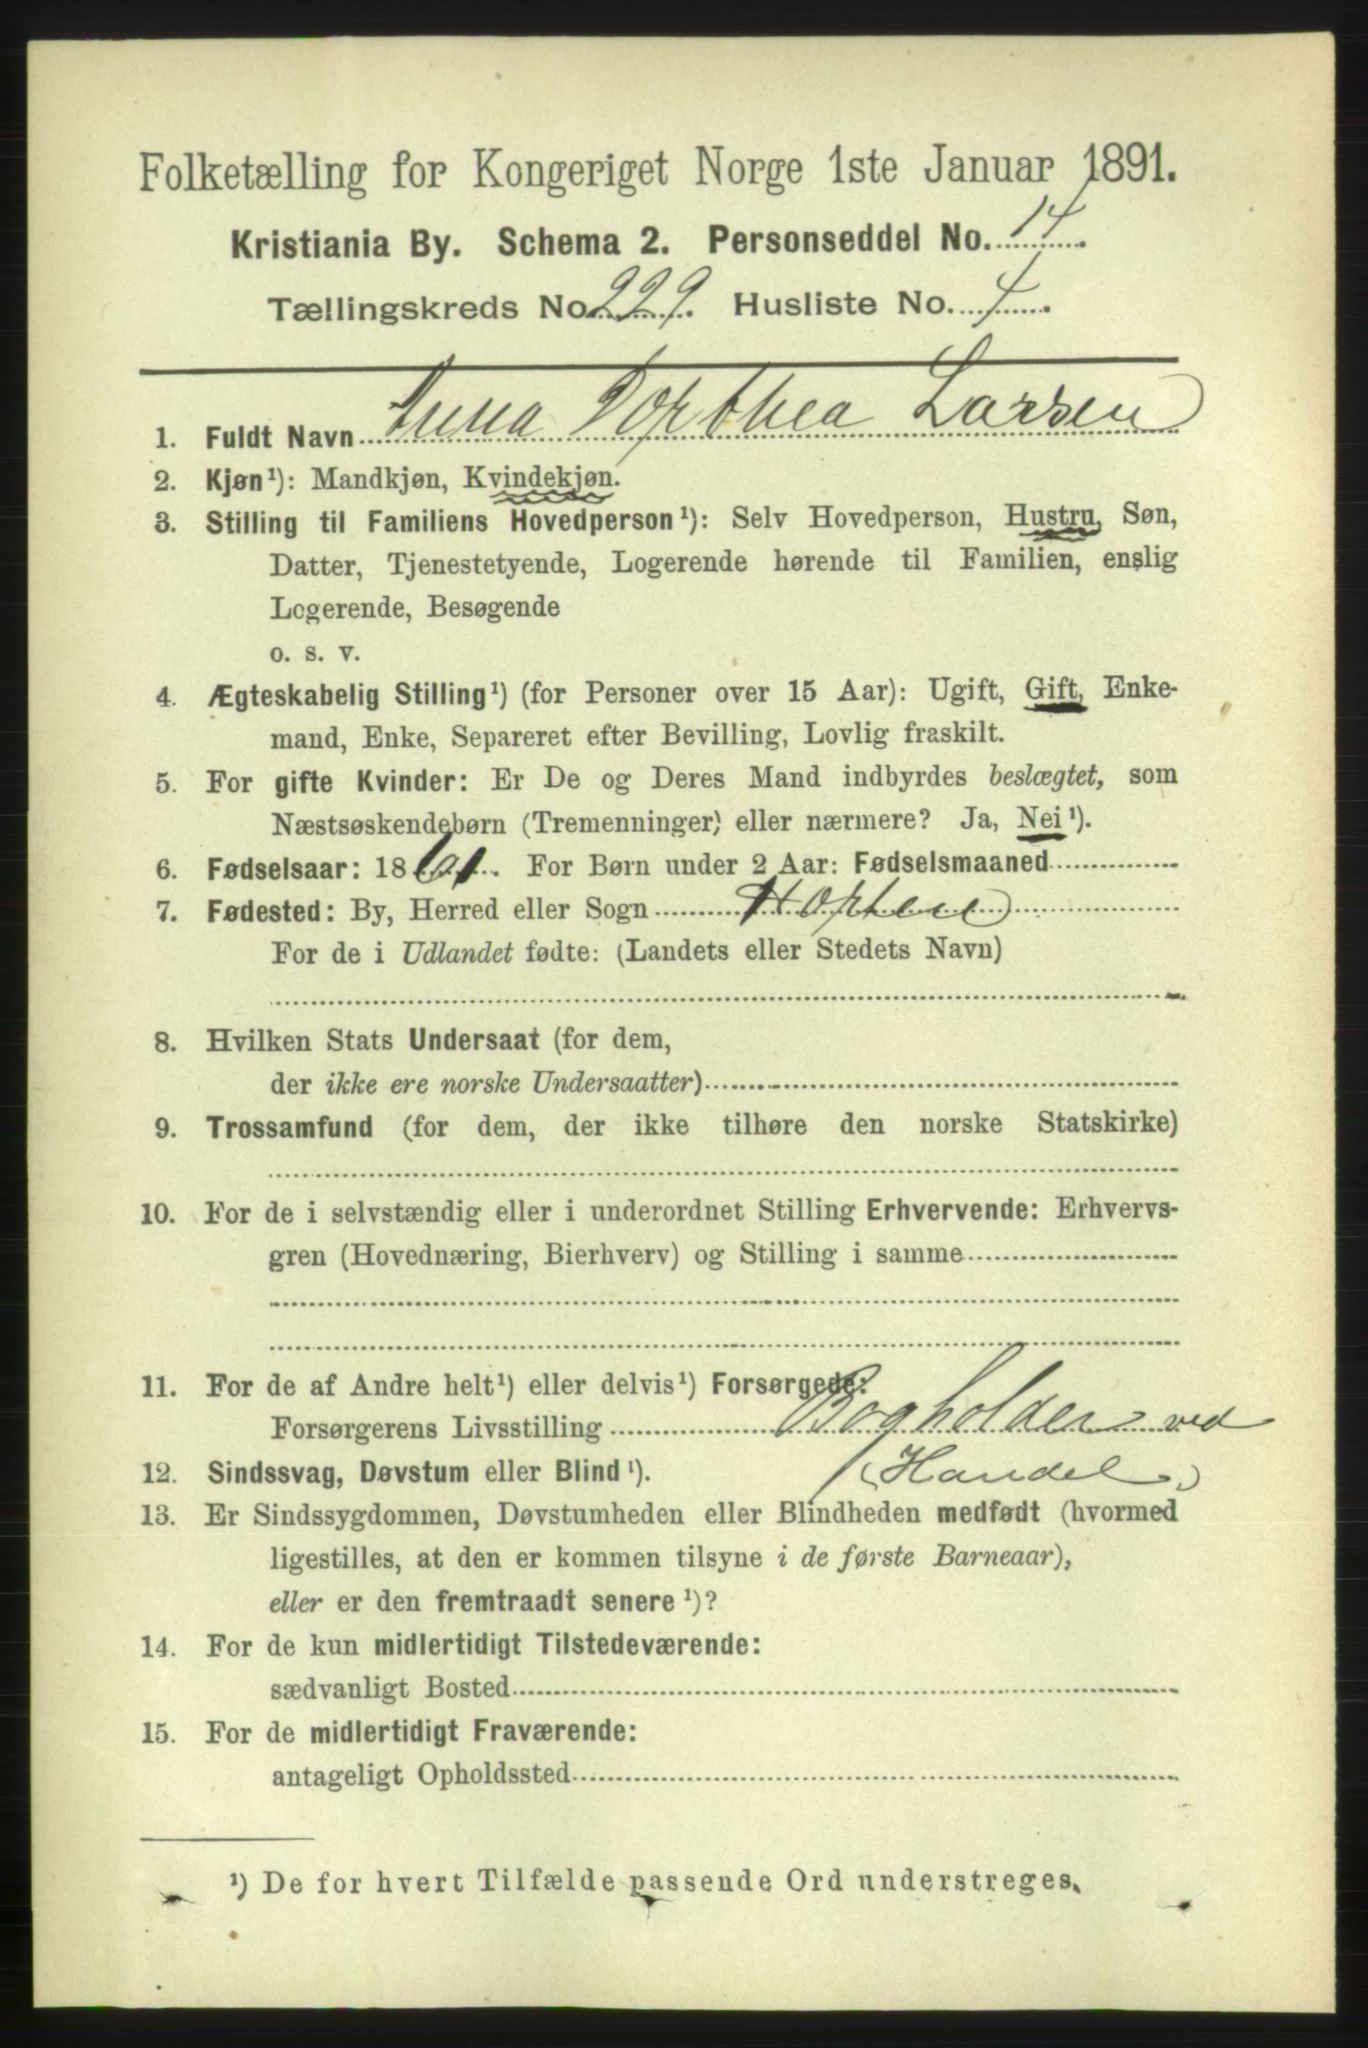 Folketælling for Kongeriget Norge 1ste Januar 1891.
Kristiania By. Schema 2. Personseddel No. 14.
Tællingskreds No. 229. Husliste No. 4.
1. Fuldt Navn Anna Dorthea Larsen
2. Kjøn¹): Mandkjøn, Kvindekjøn.
3. Stilling til Familiens Hovedperson¹): Selv Hovedperson, Hustru, Søn,
Datter, Tjenestetyende, Logerende hørende til Familien, enslig
Logerende, Besøgende
o. s. v.
4. Ægteskabelig Stilling¹) (for Personer over 15 Aar): Ugift, Gift, Enke-
mand, Enke, Separeret efter Bevilling, Lovlig fraskilt.
5. For gifte Kvinder: Er De og Deres Mand indbyrdes beslægtet, som
Næstsøskendebørn (Tremenninger) eller nærmere? Ja, Nei¹).
6. Fødselsaar: 1861. For Børn under 2 Aar: Fødselsmaaned
7. Fødested: By, Herred eller Sogn Horten
For de i Udlandet fødte: (Landets eller Stedets Navn)
8. Hvilken Stats Undersaat (for dem,
der ikke ere norske Undersaatter)
9. Trossamfund (for dem, der ikke tilhøre den norske Statskirke)
10. For de i selvstændig eller i underordnet Stilling Erhvervende: Erhvervs-
gren (Hovednæring, Bierhverv) og Stilling i samme
11. For de af Andre helt¹) eller delvis¹) Forsørgede:
Forsørgerens Livsstilling Bogholder ved
(Handel)
12. Sindssvag, Døvstum eller Blind¹).
13. Er Sindssygdommen, Døvstumheden eller Blindheden medfødt (hvormed
ligestilles, at den er kommen tilsyne i de første Barneaar),
eller er den fremtraadt senere¹)?
14. For de kun midlertidigt Tilstedeværende:
sædvanligt Bosted
15. For de midlertidigt Fraværende:
antageligt Opholdssted
¹) De for hvert Tilfælde passende Ord understreges.